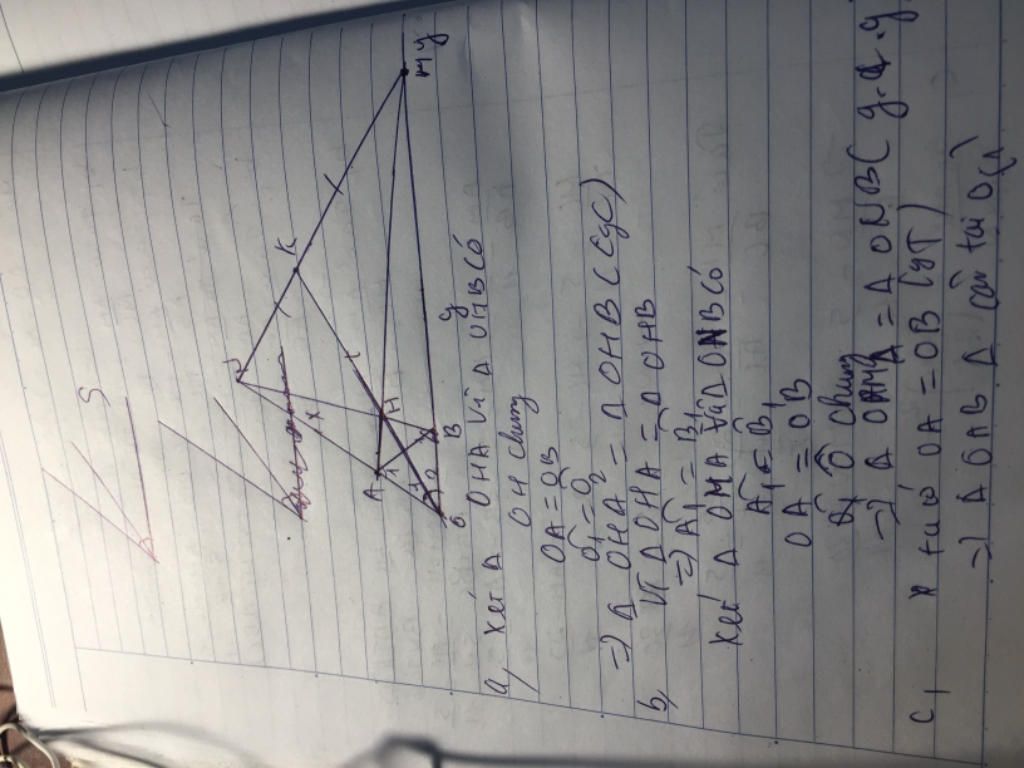 S
x
N
K
M y
A
H
B
O
a) Xét Δ OHA và Δ OHB có
OH chung
OA = OB
Ô1 = Ô2
=> Δ OHA = Δ OHB (cgc)
b) Vì Δ OHA = Δ OHB
=> Â1 = B̂1
Xét Δ OMA và Δ ONB có
Â1 = B̂1
OA = OB
Ô chung
=> Δ OAM = Δ ONB ( g.c.g
c) có OA = OB (gT)
=> Δ OAB Δ cân tại O